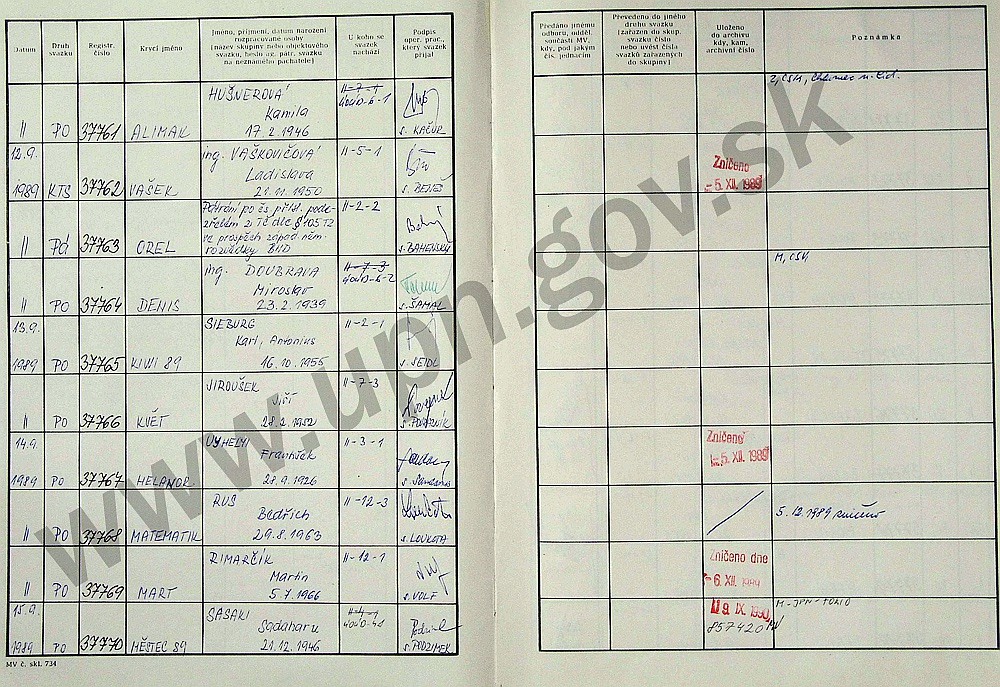 Datum
Druh svazku
Registr. číslo
Krycí jméno
Jméno, příjmení, datum narození
rozpracované osoby
(název skupiny nebo objektového
svazku, heslo ag. pátr. svazku
na neznámého pachatele)
U koho se
svazek
nachází
Podpis
oper. prac.,
který svazek
přijal
Předáno jinému
odboru, odděl.
součásti MV,
kdy, pod jakým
čís. jednacím
Převedeno do jiného
druhu svazku
(zařazen do skup.
svazku číslo
nebo uvést čísla
svazků zařazených
do skupiny)
Uloženo
do archivu
kdy, kam,
archivní číslo
Poznámka
HUŠNEROVÁ II-7-1
Kamila 4040-6-1
II PO 37761 ALIMAK 17. 2. 1946 s. KAČUR
12.9. ing. VAŠKOVIČOVÁ II-5-1
Ladislava
1989 KTS 37762 VAŠEK 21. 11. 1950
Zničeno
-5. XII. 1989
Pátrání po čs přísl. pode- II-2-2
zřelém z TČ dle § 105 TZ
ve prospěch západ něm.
II Pá 37763 OREL rozvědky BND s. BAHENSKÝ
ing. DOUBRAVA II-7-3
Miroslav 4040-6-2
II PO 37764 DENIS 23. 2. 1939 s. ŠAMAL
M, ČSR
13.9. SIEBURG II-2-1
Karl, Antonius
1989 PO 37765 KIWI 89 16. 10. 1955 s. SEIDL
JIROUŠEK II-7-3
Jiří
II PO 37766 KVĚT 28. 2. 1952
14.9. UYHELYI II-3-1
František
1989 PO 37767 HELANOR 28. 9. 1926
Zničeno
-5. XII. 1989
RUS II-12-3
Bedřich
II PO 37768 MATEMATIK 29. 8. 1963 s. LOUKOTA
5. 12. 1989 zničeno
RIMARČÍK II-12-1
Martin
II PO 37769 MART 5. 7. 1966 s. VOLF
Zničeno dne
-6. XII. 1989
15.9. SASAKI II-4-1
Sadaharu 4040-41
1989 PO 37770 MĚSTEC 89 21. 12. 1946 s. PODZIMEK
9. IX. 1990
857420 MV
M-JPN-TOKIO
MV č. skl. 734
www.upn.gov.sk